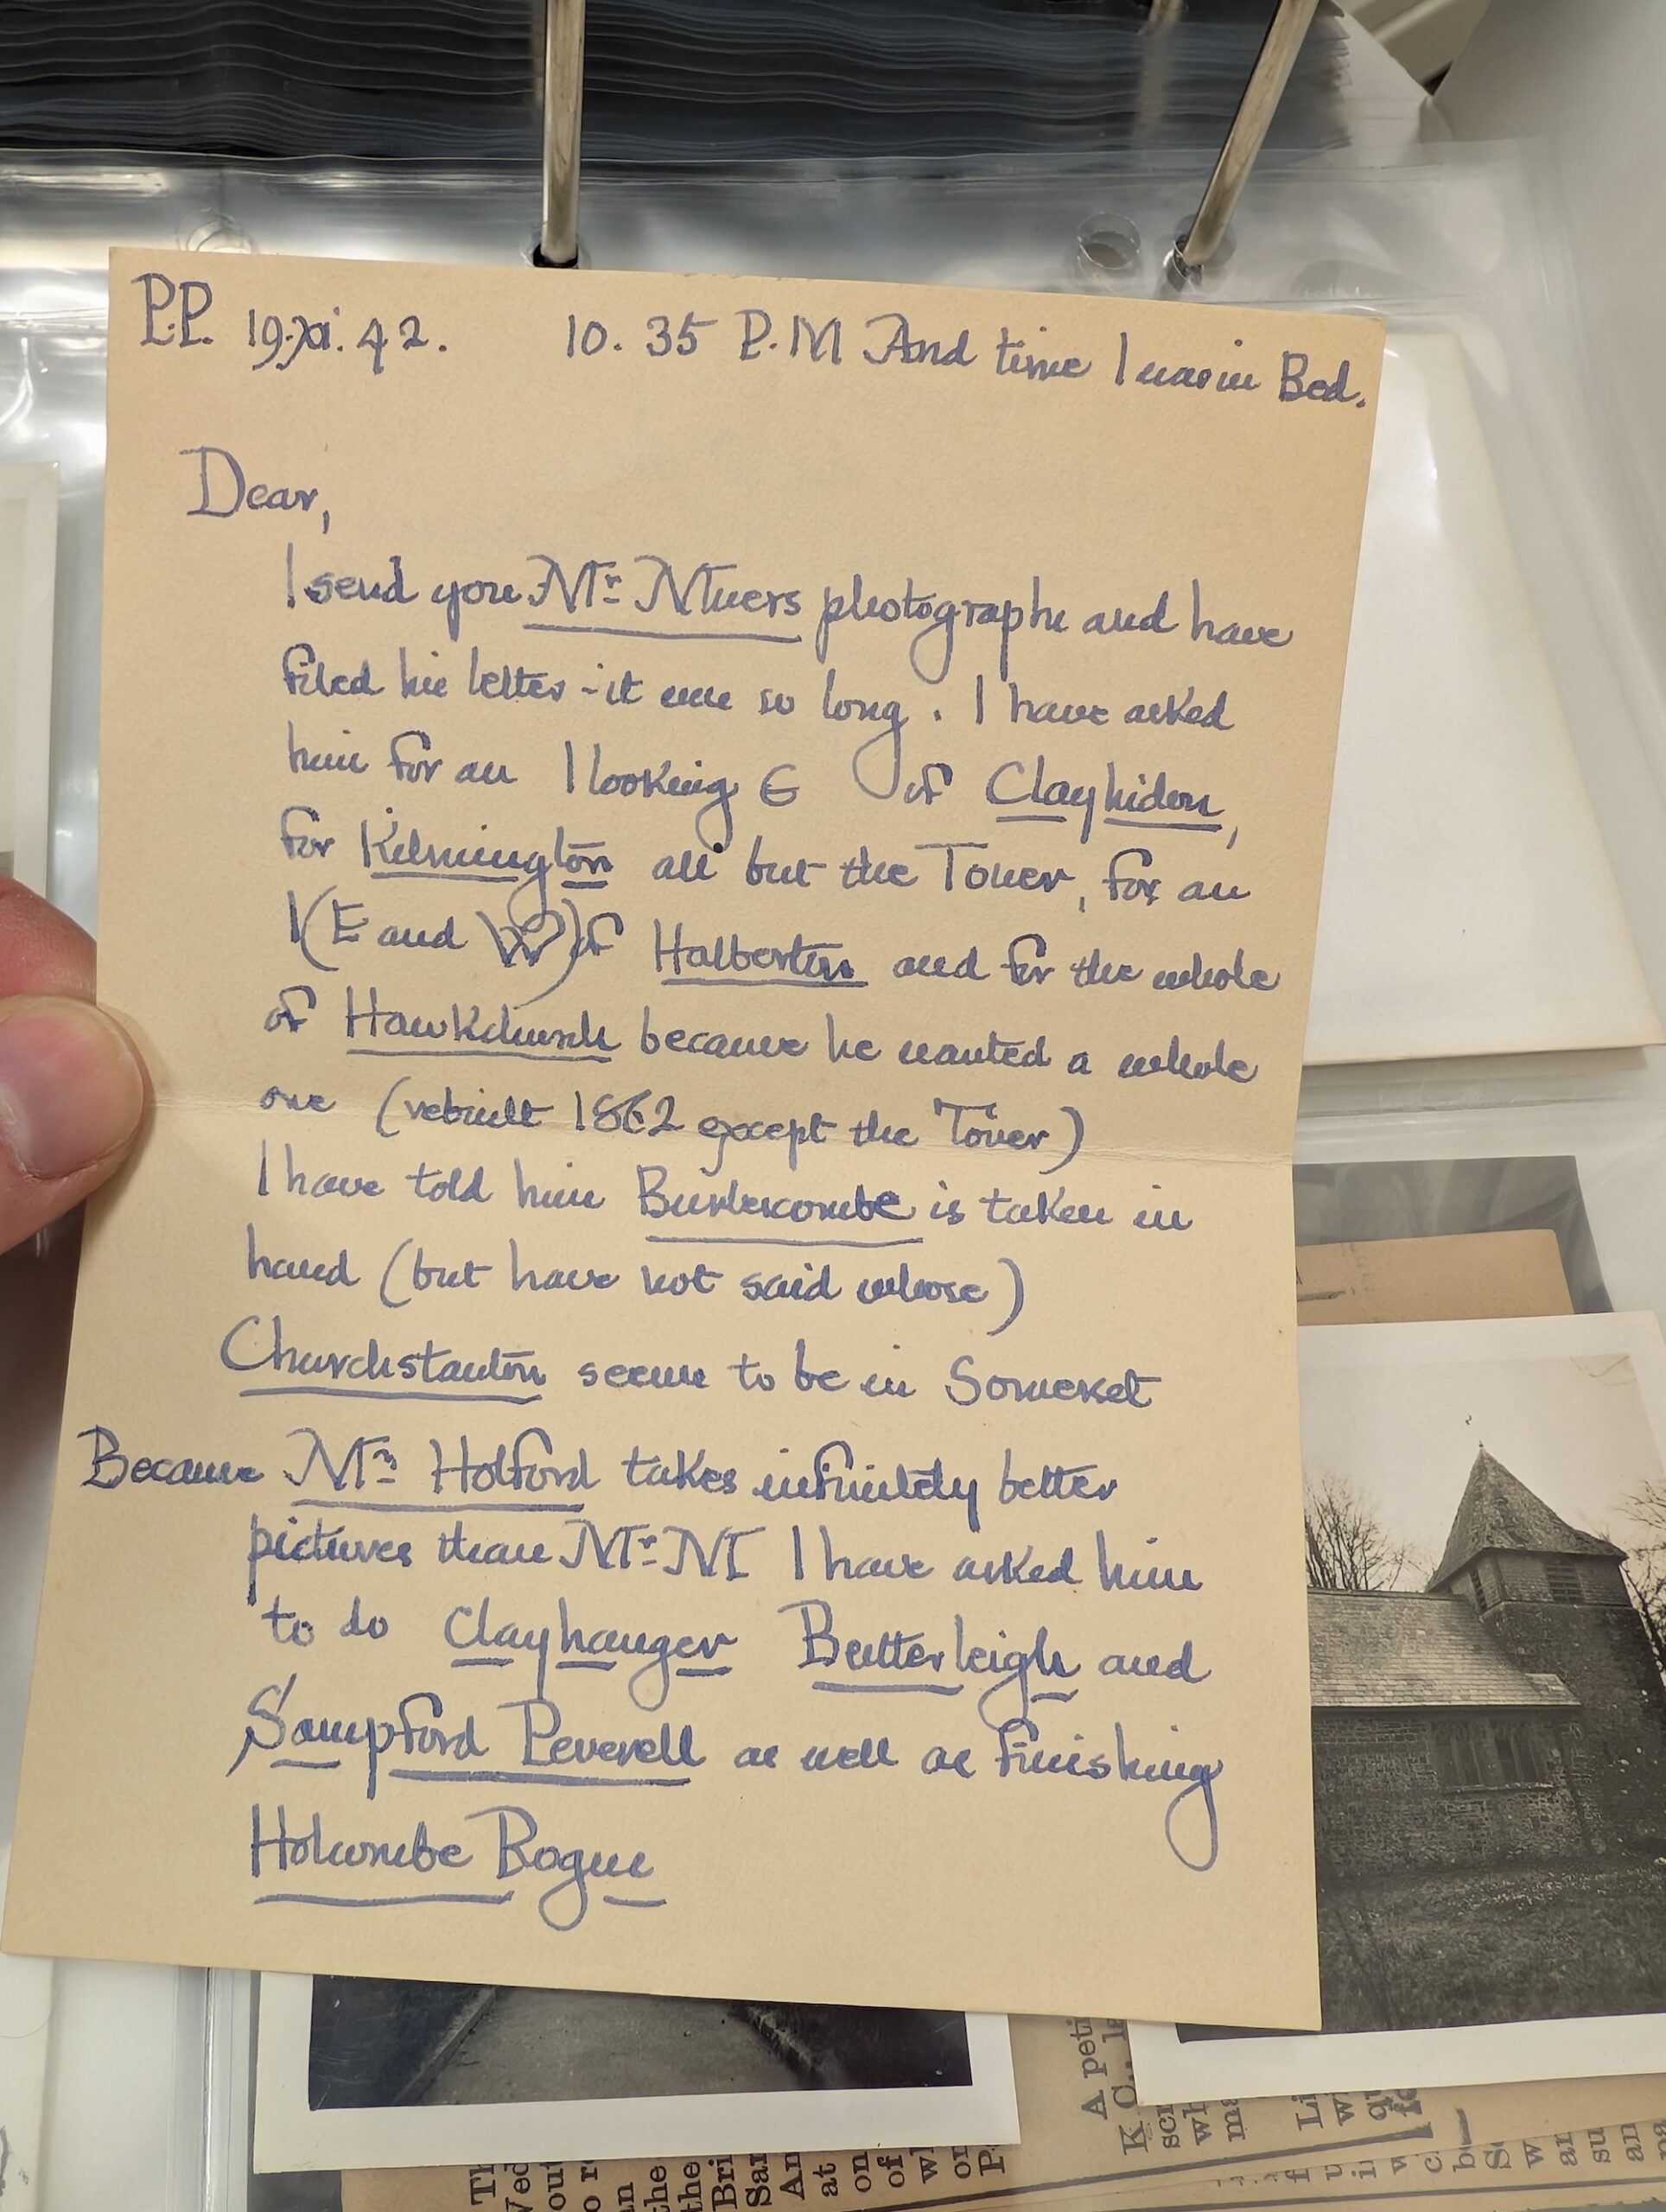 P.P. 19.xi.42. 10.35 P.M And time I was in Bed.
Dear,
I send you Mr Mners photographs and have
filed his letter - it was so long. I have asked
him for an I looking E of Clayhidon,
for Kilmington all but the Tower, for an
I (E and W) of Halberton and for the whole
of Hawkchurch because he wanted a whole
one (rebuilt 1862 except the Tower)
I have told him Burlescombe is taken in
hand (but have not said whose)
Churchstanton seems to be in Somerset
Because Mr Holford takes infinitely better
pictures than Mr M I have asked him
to do Clayhanger Butterleigh and
Sampford Peverell as well as finishing
Holcombe Rogue
A peti
K C., l
scr
wh
ma
Li
w
Th
Wed
out
the
the
Bri
Sar
An
at
on
of
w
on
P
su
an